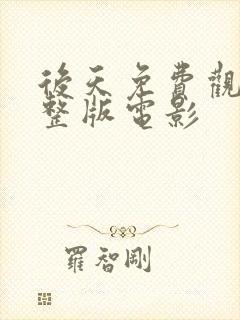 後天免費觀
整版電影
羅智剛